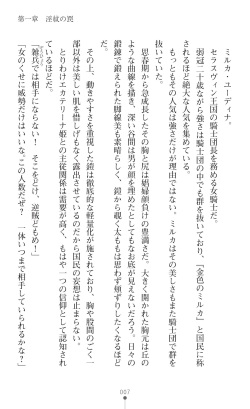 第一章　淫紋の罠
ミルカ・ユーディナ。
セラスヴィン王国の騎士団長を務める女騎士だ。
弱冠二十歳ながら強さは騎士団の中でも群を抜いており、「金色のミルカ」と国民に称
されるほど絶大な人気を集めている。
もっともその人気は強さだけが理由ではない。ミルカはその美しさもまた騎士団で群を
抜いていた。
思春期から急成長したその胸と尻は娼婦顔負けの豊満さだ。大きく開かれた胸元は丘の
ような曲線を描き、深い谷間は男が顔を埋めたとしてもなお底が見えないだろう。日々の
鍛錬で鍛えられた脚線美も素晴らしく、鎧から覗く太ももは思わず頬ずりしたくなるほど
だ。
その上、動きやすさを重視した鎧は徹底的な軽量化が施されており、胸や股間のごく一
部以外は美しい肌を惜しげもなく露出させているのだから国民の妄想は止まらない。
とりわけエカテリーナ姫との主従関係は需要が高く、もはや一つの信仰として認知され
「雑兵では相手にならない！　そこをどけ、逆賊どもめ！」
「女のくせに威勢だけはいいな。この人数だぜ？　一体いつまで相手していられるかな？」
007